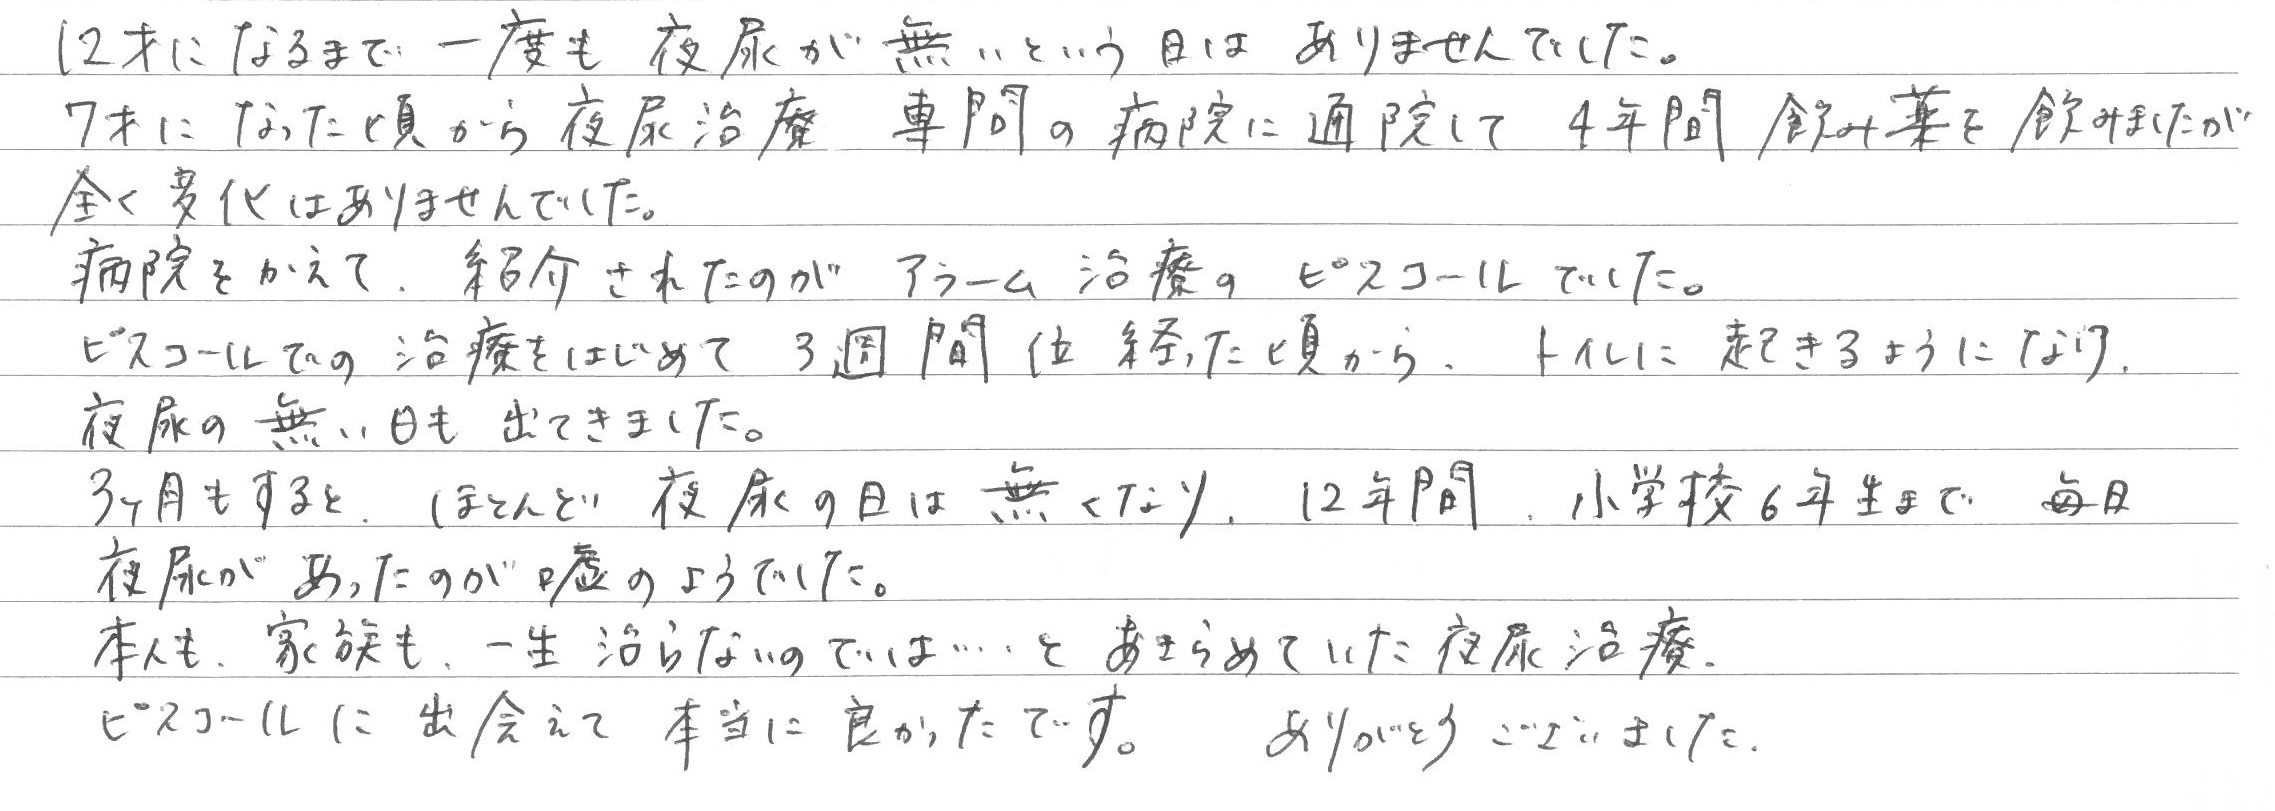 12才になるまで一度も夜尿が無いという日はありませんでした。
7才になった頃から夜尿治療専門の病院に通院して4年間飲み薬を飲みましたが
全く変化はありませんでした。
病院をかえて、紹介されたのがアラーム治療のピスコールでした。
ピスコールでの治療をはじめて3週間位経った頃から、トイレに起きるようになり、
夜尿の無い日も出てきました。
3ヶ月もすると、ほとんど夜尿の日は無くなり、12年間、小学校6年生まで毎日
夜尿があったのが嘘のようでした。
本人も、家族も、一生治らないのでは…とあきらめていた夜尿治療、
ピスコールに出会えて本当に良かったです。 ありがとうございました。